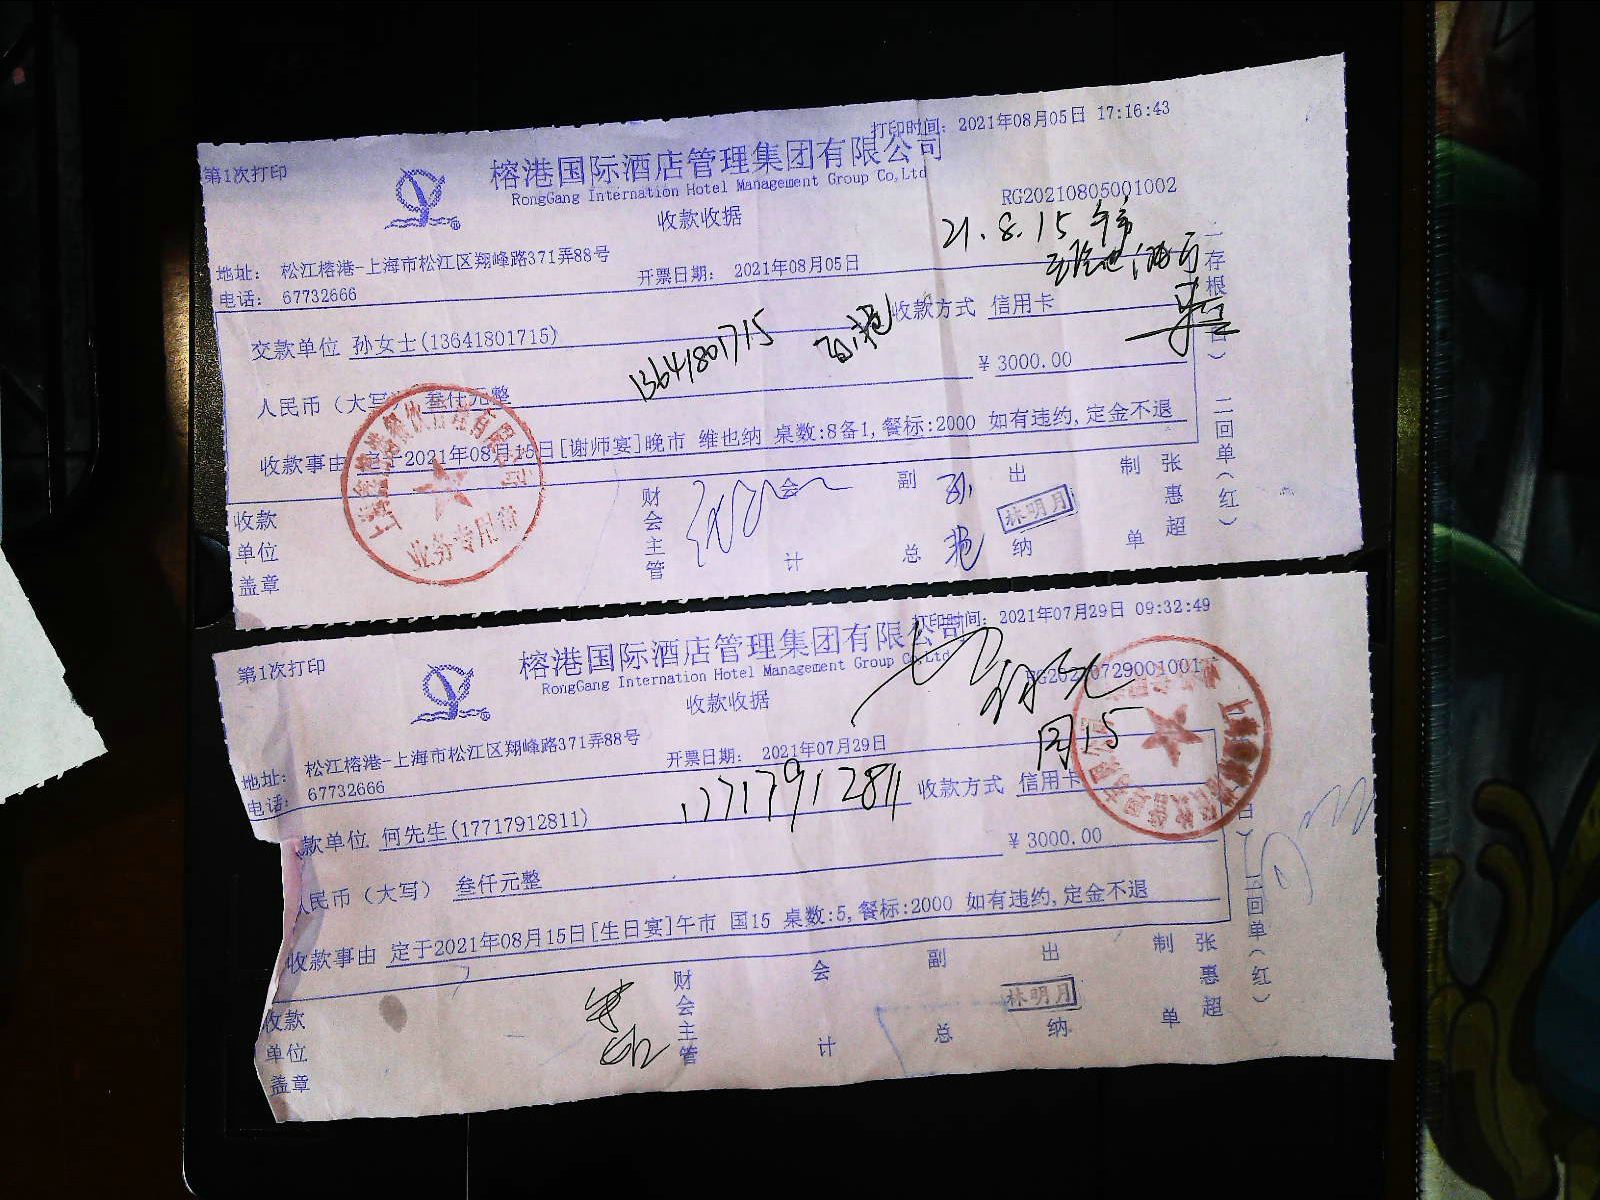 第1次打印
打印时间：2021年08月05日 17:16:43
榕港国际酒店管理集团有限公司
RongGang Internation Hotel Management Group Co,Ltd
RG20210805001002
收款收据
21.8.15
地址： 松江榕港-上海市松江区翔峰路371弄88号
电话： 67732666
开票日期： 2021年08月05日
交款单位 孙女士(13641801715)
13641801715
收款方式 信用卡
人民币（大写） 叁仟元整
¥ 3000.00
收款事由 定于2021年08月15日[谢师宴]晚市 维也纳 桌数:8备1,餐标:2000 如有违约,定金不退
收款单位盖章
财会主管
会计
副总
出纳
林明月
制单
张惠超
二回单（红）
业务专用章
第1次打印
打印时间：2021年07月29日 09:32:49
榕港国际酒店管理集团有限公司
RongGang Internation Hotel Management Group Co,Ltd
RG20210729001001
收款收据
国15
地址： 松江榕港-上海市松江区翔峰路371弄88号
电话： 67732666
开票日期： 2021年07月29日
款单位 何先生(17717912811)
17717912811
收款方式 信用卡
人民币（大写） 叁仟元整
¥ 3000.00
收款事由 定于2021年08月15日[生日宴]午市 国15 桌数:5,餐标:2000 如有违约,定金不退
收款单位盖章
财会主管
会计
副总
出纳
林明月
制单
张惠超
二回单（红）